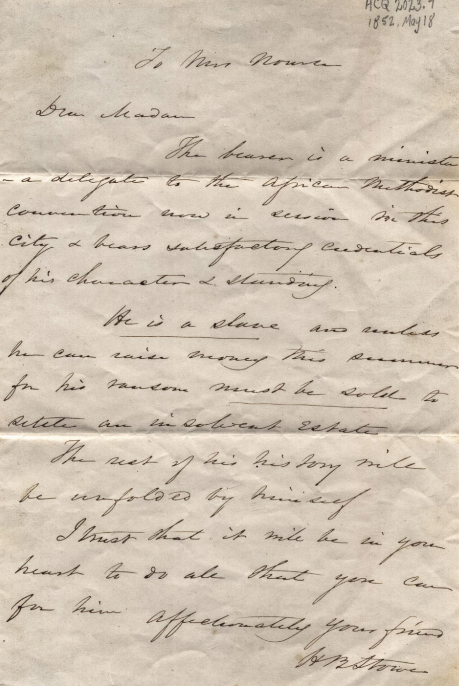 ACQ 2023.9
1852, May 18
To Mrs Nourse
Dear Madam
The bearer is a minister
- a delegate to the African Methodist
convention now in session in this
city & bears satisfactory credentials
of his character & standing.
He is a slave and unless
he can raise money this summer
for his ransom must be sold to
settle an insolvent Estate
The rest of his history will
be unfolded by himself
I trust that it will be in your
heart to do all that you can
for him affectionately your friend
H B Stowe